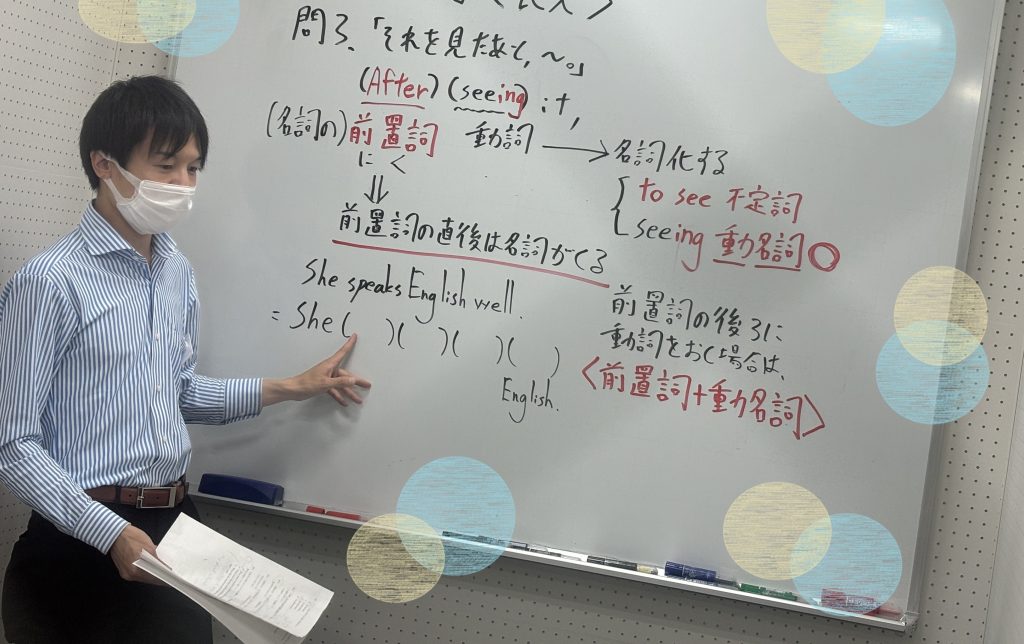 問3、「それを見たあと,〜。」
(After) (seeing) it,
(名詞の)前置詞 動詞 → 名詞化する
に<
to see 不定詞
seeing 動名詞○
⇓
前置詞の直後は名詞がくる
She speaks English well.
= She ( )( )( )( )
English.
前置詞の後ろに
動詞をおく場合は、
<前置詞+動名詞>